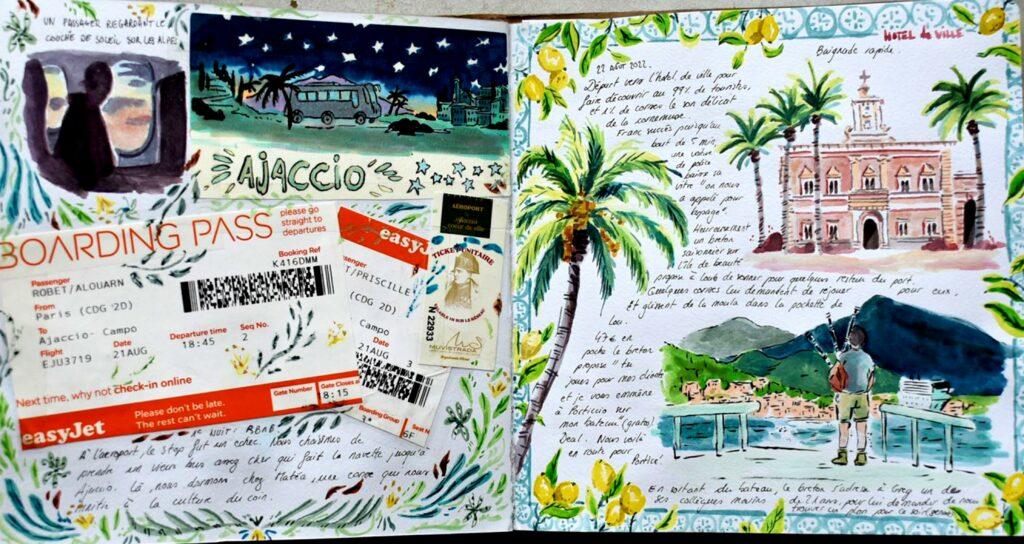 UN PASSAGER REGARDANT LE
COUCHÉ DE SOLEIL SUR LES ALPES
AJACCIO
BOARDING PASS
please go
straight to
departures
Booking Ref
K416DMM
Passenger
ROBET/ALOUARN
From
Paris (CDG 2D)
To
Ajaccio- Campo
Departure time
18:45
Seq No.
2
Flight
EJU3719
Date
21AUG
Next time, why not check-in online
Gate Number
Gate Closes at
8:15
Please don't be late.
The rest can't wait.
easyJet
easyJ
T/PRISCILLE
(CDG 2D)
Campo
21AUG
3
Boarding Group
6F
AÉROPORT
Ajaccio
coeur de ville
TICKET UNITAIRE
N 22933
MUVISTRADA
1e NUIT: RBNB
A l'aéroport, le stop fut un échec. Nous choisimes de
prendre un vieux bus assez cher qui fait la navette jusqu'à
Ajaccio. Là, nous dormons chez Matéa, une corse qui nous
à la culture du coin.
HOTEL de VILLE
Baignade rapide.
22 août 2022.
Départ vers l'hotel de ville pour
faire découvrir au 99% de touristes
et 1% de corses le son délicat
de la cornemuse.
Franc succès puisqu'au
bout de 5 min,
une voiture
de police
baisse sa
vitre "on nous
a appelé pour
tapage".
Heureusement
un breton
saisonnier sur
l'île de beauté
propose à Loué de sonner pour quelques restau du port.
Quelques corses lui demandent de rejouer pour eux,
Et glissent de la moula dans la pochette de
Lou.
47€ en
poche le breton
propose "tu
joues pour mes clients
et je vous emmène
à Porticcio sur
mon bateau" (gratos)
Deal. Nous voilà
en route pour
Portice!
En sortant du bateau, le breton s'adresse à Greg un de
ses collègues marins de 21 ans, pour lui demander de nous
trouver un plan pour le soir